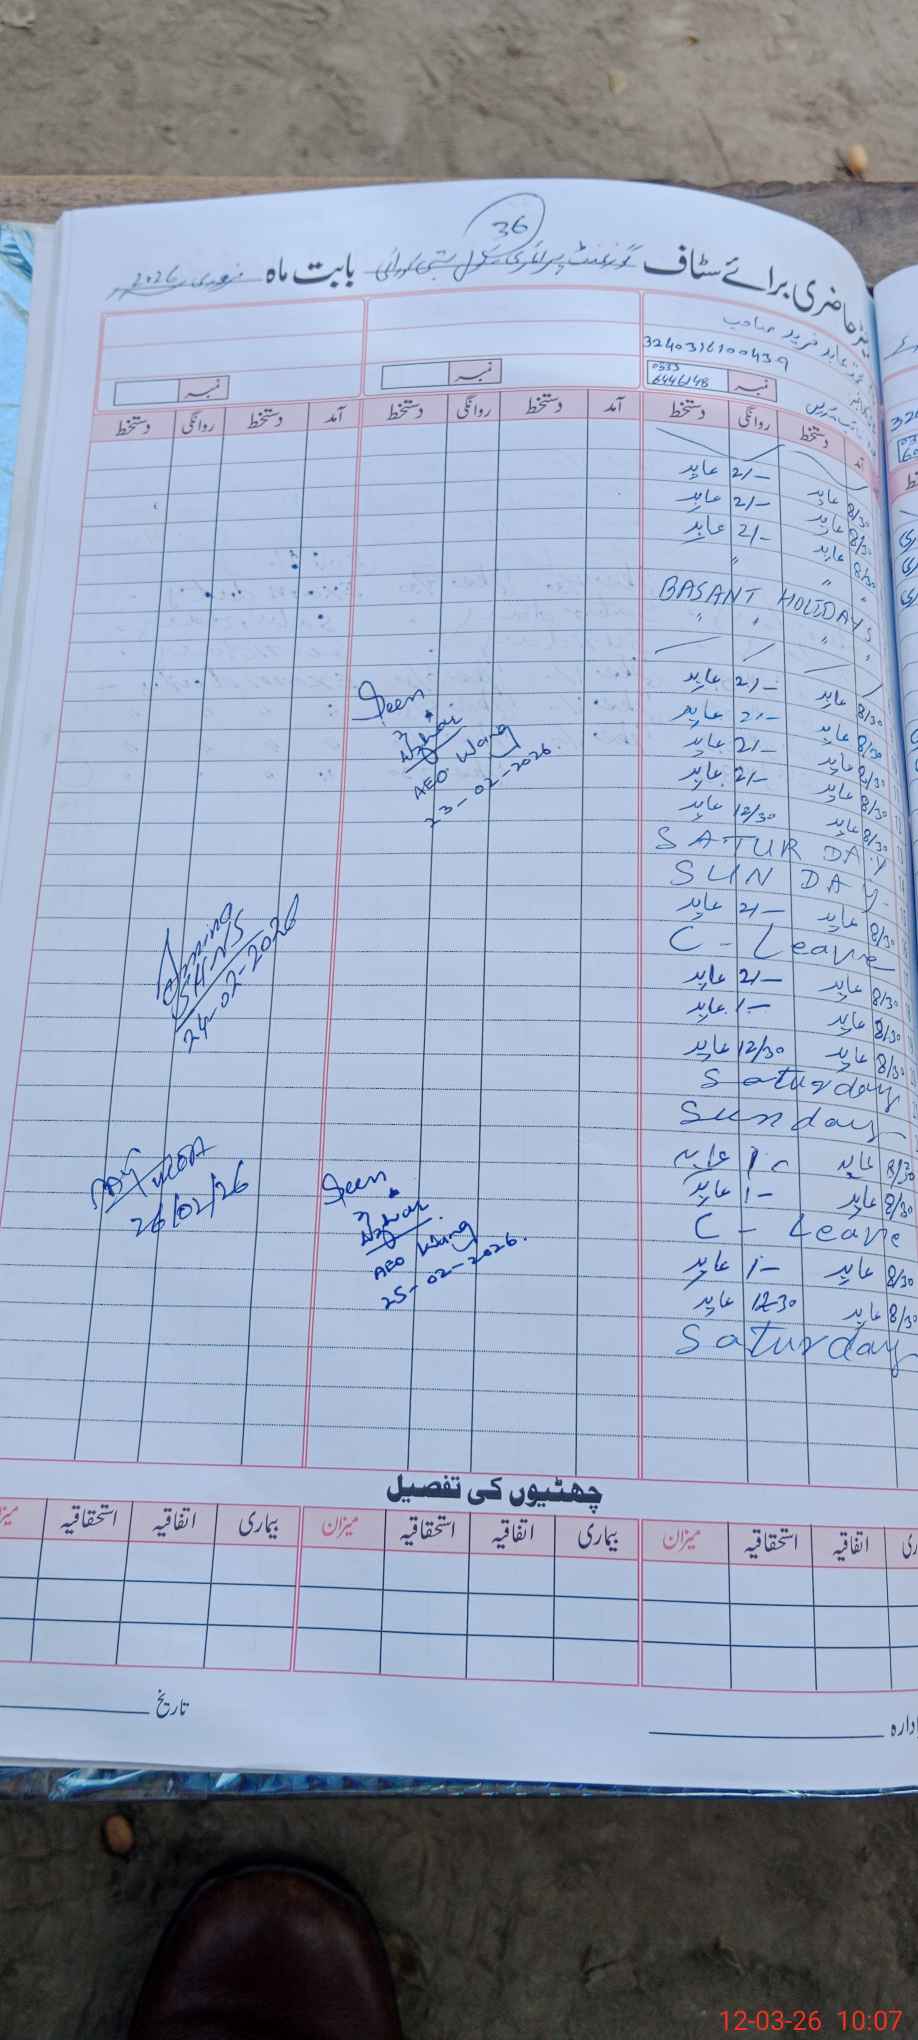 36
حاضری برائے سٹاف گورنمنٹ پرائمری سکول بستی بابت ماہ فروری 2026
عابد فرید صاحب
3240316100439
نمبر 0333 6446148 نمبر نمبر
دستخط روانگی دستخط آمد دستخط روانگی دستخط آمد دستخط روانگی دستخط
8/30 عابد 2/- عابد
8/30 عابد 2/- عابد
8/30 عابد 2/- عابد
" "
BASANT HOLIDAYS
" " " "
8/30 عابد 2/- عابد
8/30 عابد 2/- عابد
8/30 عابد 2/- عابد
8/30 عابد 2/- عابد
8/30 عابد 12/30 عابد
SATURDAY
SUNDAY
8/30 عابد 2/- عابد
C - Leave
8/30 عابد 2/- عابد
8/30 عابد 1/- عابد
8/30 عابد 12/30 عابد
Saturday
Sunday
8/30 عابد 1/- عابد
8/30 عابد 1/- عابد
C - Leave
8/30 عابد 1/- عابد
8/30 عابد 12-30 عابد
Saturday
Seen
AEO Wang
23-02-2026.
SHNS
24-02-2026
26/02/26
Seen
AEO Wang
25-02-2026.
چھٹیوں کی تفصیل
اتفاقیہ استحقاقیہ میزان بیماری اتفاقیہ استحقاقیہ میزان بیماری اتفاقیہ استحقاقیہ
تاریخ
12-03-26 10:07